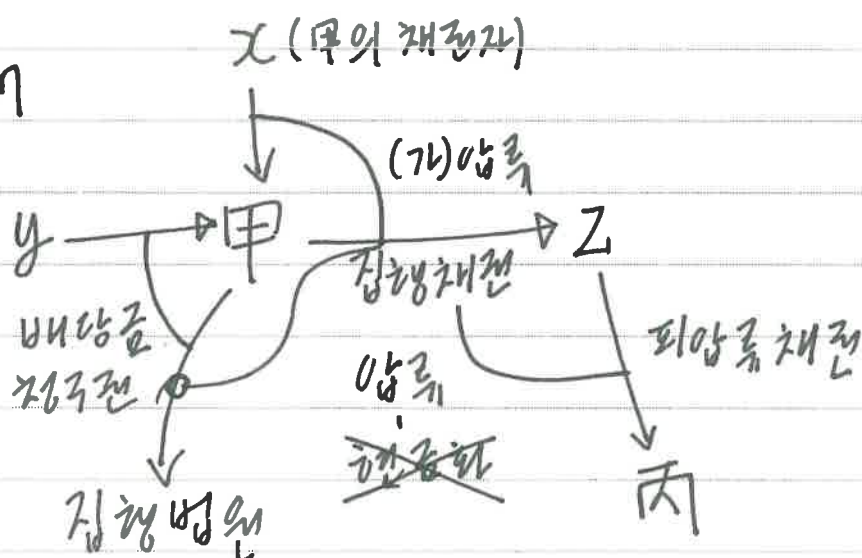 x (甲의 채권자)
(가)압류
y 甲 Z
집행채권
배당금
청구권
압류
피압류채권
현금화
집행법원
丙